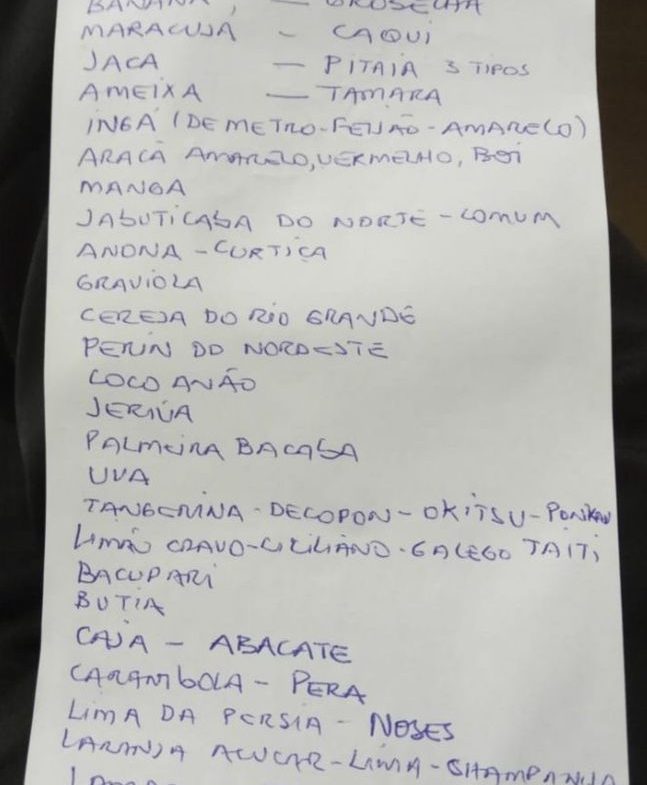 BANANA, — GROSELHA
MARACUJA - CAQUI
JACA — PITAIA 3 TIPOS
AMEIXA — TAMARA
INGÁ (DE METRO-FEIJÃO-AMARELO)
ARAÇA AMARELO, VERMELHO, BOI
MANGA
JABUTICABA DO NORTE - COMUM
ANONA - CURTIÇA
GRAVIOLA
CEREJA DO RIO GRANDE
DO NORDESTE
COCO ANÃO
JERIVA
PALMEIRA BACABA
UVA
TANGERINA - DECOPON - OKITSU - PONKAN
LIMÃO CRAVO-CICILIANO-GALEGO TAITI
BACUPARI
BUTIA
CAJA - ABACATE
CARAMBOLA - PERA
LIMA DA PERSIA - NOSES
LARANJA AÇUCAR-LIMA-CHAMPANHA